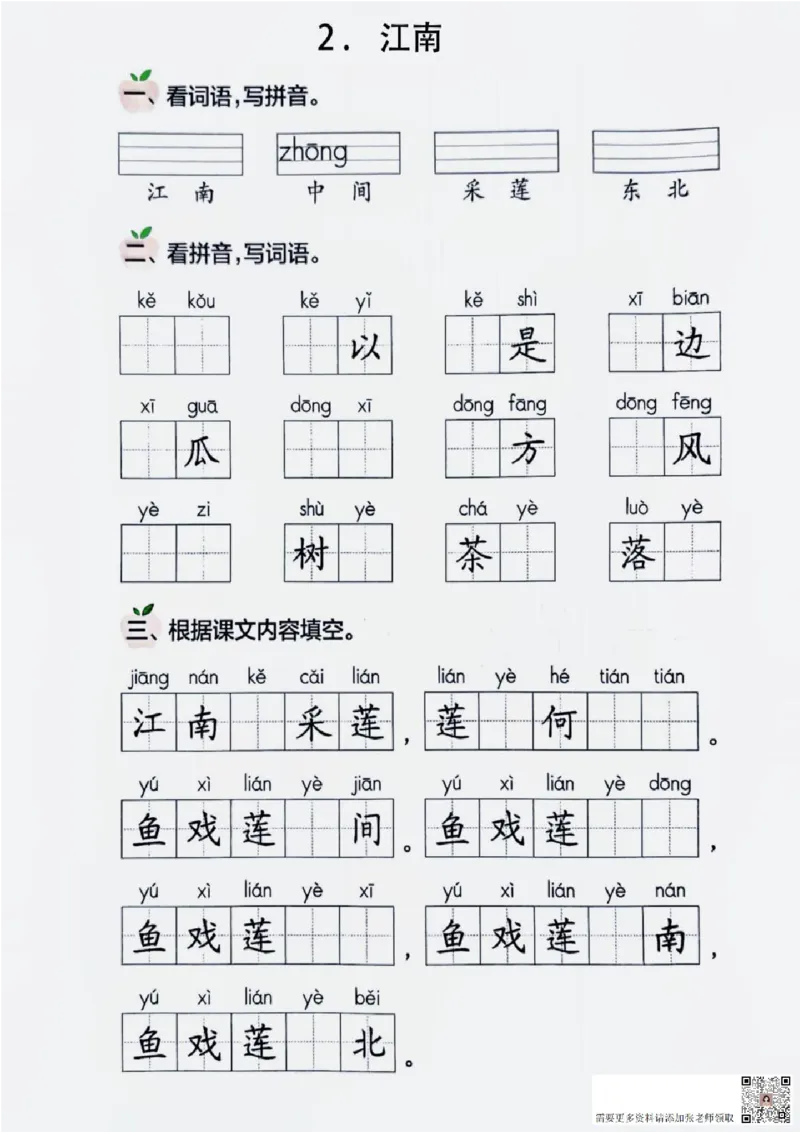 2. 江南
一、看词语,写拼音。
zhōng
江 南 中 间 采 莲 东 北
二、看拼音,写词语。
kě kǒu kě yǐ kě shì xī biān
以 是 边
xī guā dōng xī dōng fāng dōng fēng
瓜 方 风
yè zi shù yè chá yè luò yè
树 茶 落
三、根据课文内容填空。
jiāng nán kě cǎi lián lián yè hé tián tián
江 南 采 莲 , 莲 何 。
yú xì lián yè jiān yú xì lián yè dōng
鱼 戏 莲 间 。 鱼 戏 莲 ,
yú xì lián yè xī yú xì lián yè nán
鱼 戏 莲 , 鱼 戏 莲 南 ,
yú xì lián yè běi
鱼 戏 莲 北 。
需要更多资料请添加张老师领取